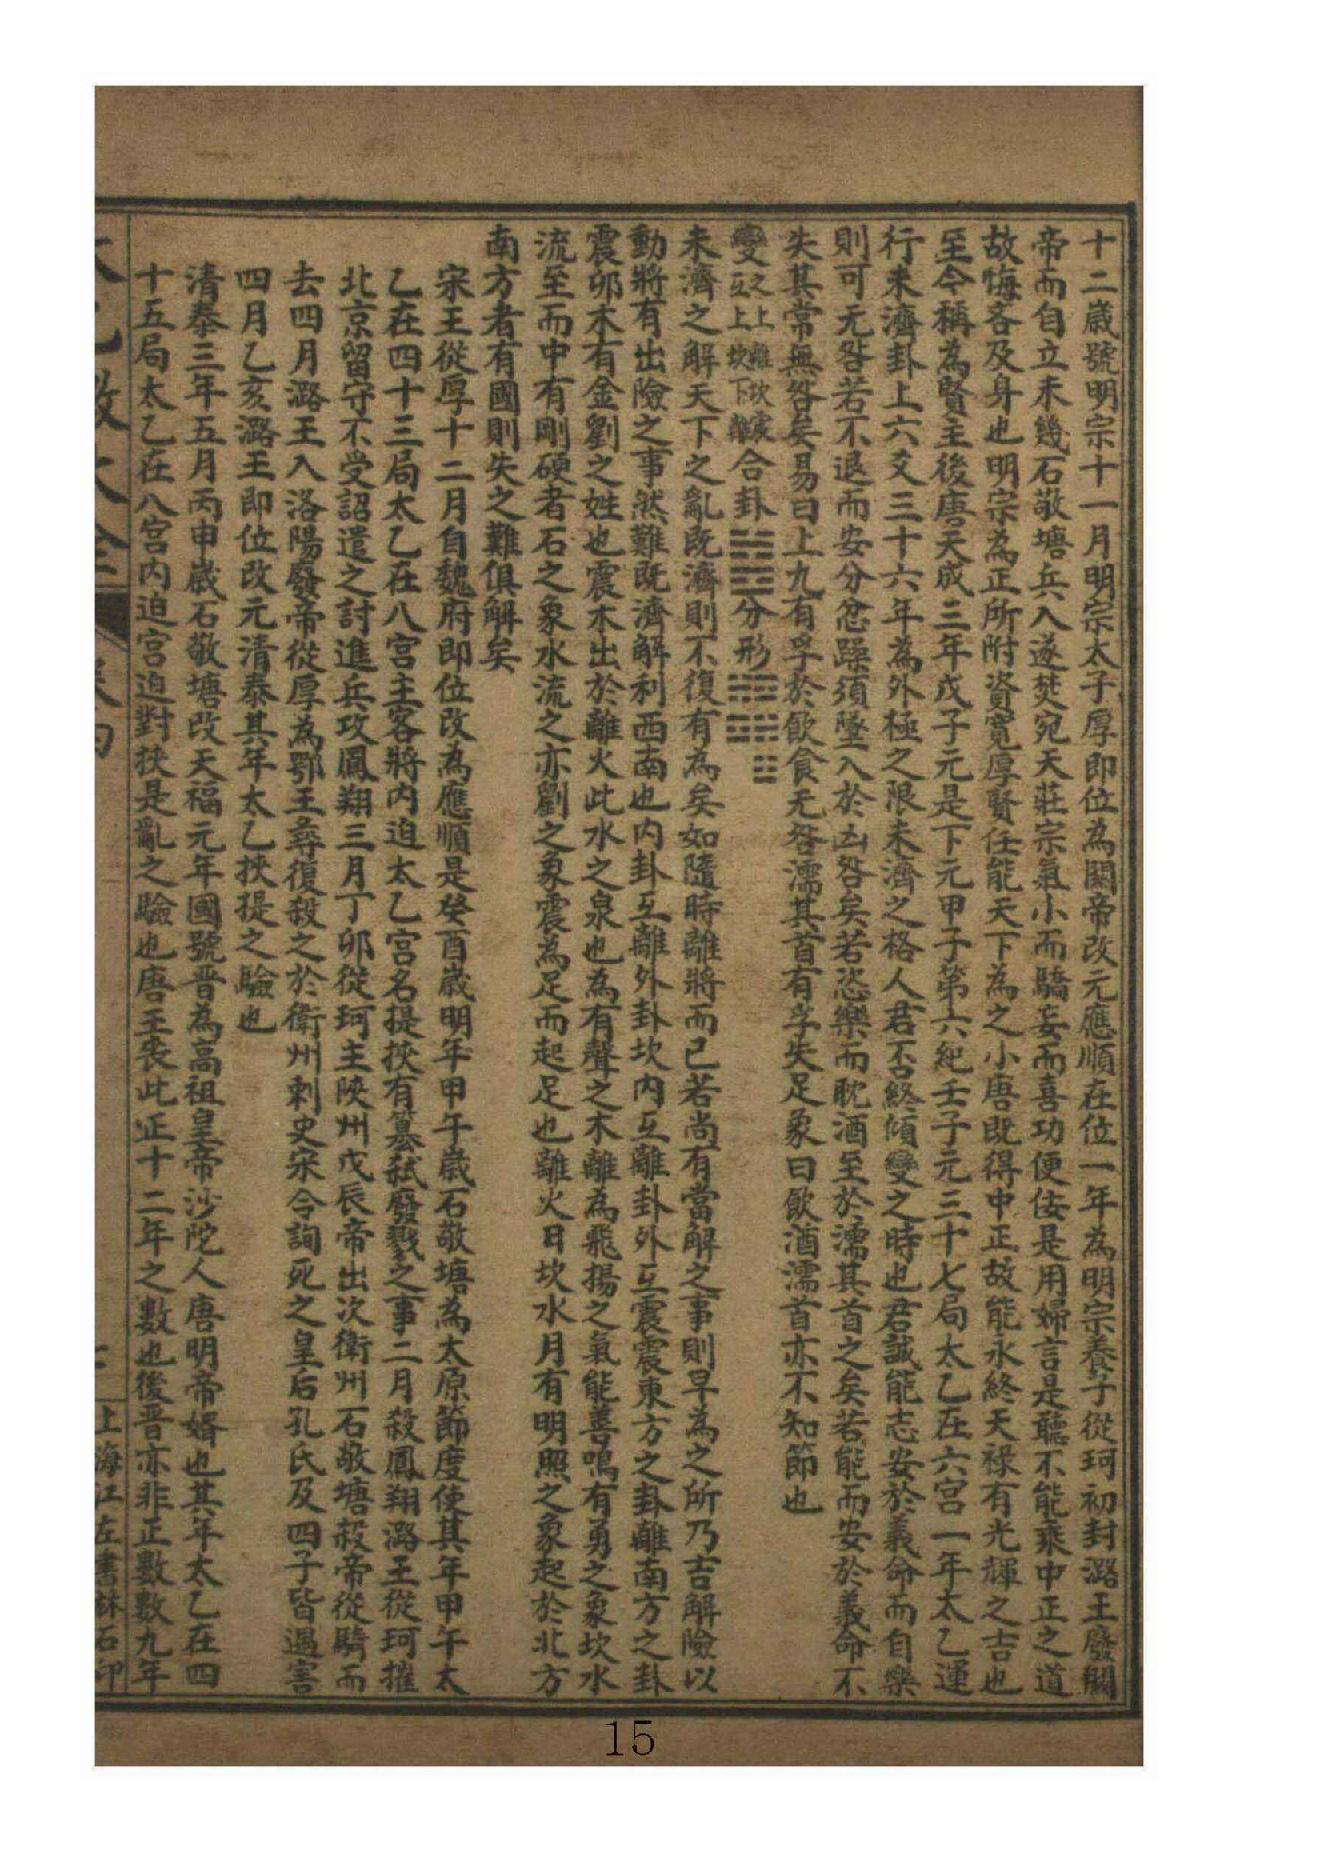 十二歲號明宗十一月明宗太子厚即位為閔帝改元應順在位一年為明宗養子從珂初封潞王廢閔
帝而自立未幾石敬塘兵入遂焚宛天莊宗氣小而驕妄而喜功便佞是用婦言是聽不能乘中正之道
故悔吝及身也明宗為正所附資寬厚賢任能天下為之小唐既得中正故能永終天祿有光輝之吉也
至今稱為賢主後唐天成三年戊子元是下元甲子第六紀壬子元三十七局太乙在六宮一年太乙運
行未濟卦上六爻三十六年為外極之限未濟之格人君否終傾變之時也君誠能志安於義命而自樂
則可无咎若不退而安分忿躁須墜入於凶咎矣若恣樂而耽酒至於濡其首之矣若能而安於義命不
失其常無咎矣易曰上九有孚於飲食无咎濡其首有孚失足象曰飲酒濡首亦不知節也
變之上離坎震互上坎下離合卦䷿䷧分形
未濟之解天下之亂既濟則不復有為矣如隨時離將而已若尚有當解之事則早為之所乃吉解險以
動將有出險之事然難既濟解利西南也內卦互離外卦坎內互離卦外互震震東方之卦離南方之卦
震卯木有金劉之姓也震木出於離火此水之泉也為有聲之木離為飛揚之氣能善鳴有勇之象坎水
流至而中有剛硬者石之象水流之亦劉之象震為足而起足也離火日坎水月有明照之象起於北方
南方者有國則失之難俱解矣
宋王從厚十二月自魏府即位改為應順是癸酉歲明年甲午歲石敬塘為太原節度使其年甲午太
乙在四十三局太乙在八宮主客將內迫太乙宮名提挾有篡弒廢戮之事二月殺鳳翔潞王從珂摧
北京留守不受詔遣之討進兵攻鳳翔三月丁卯從珂主陝州戊辰帝出次衛州石敬塘殺帝從騎而
去四月潞王入洛陽廢帝從厚為鄂王彞復殺之於衛州刺史宋令詢死之皇后孔氏及四子皆遇害
四月乙亥潞王即位改元清泰其年太乙挾提之驗也
清泰三年五月丙申歲石敬塘改天福元年國號晉為高祖皇帝沙陀人唐明帝婿也其年太乙在四
十五局太乙在八宮內迫宮迫對挾是亂之驗也唐王喪此正十二年之數也後晉亦非正數數九年
太乙數大全
卷四
上海江左書林石印
15